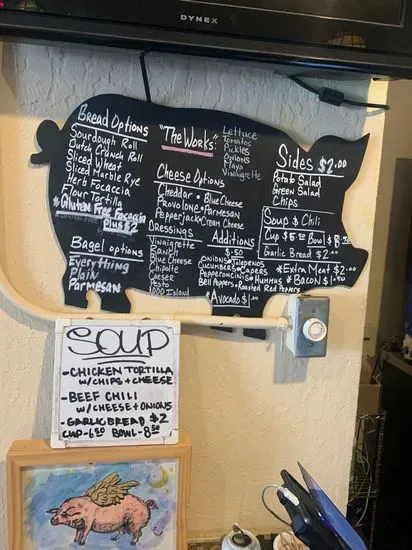 DYNEX
Bread Options
Sourdough Roll
Dutch Crunch Roll
Sliced Wheat
Sliced Marble Rye
Herb Focaccia
Flour Tortilla
*Gluten Free Focaccia
Plus $2
Bagel Options
Everything
Plain
Parmesan
"The Works:
Lettuce
Tomatoes
Pickles
Onions
Mayo
Vinaigrette
Cheese Options
Cheddar • Blue Cheese
Provolone • Parmesan
Pepperjack • Cream Cheese
Dressings
Vinaigrette
Ranch
Blue Cheese
Chipotle
Caesar
Pesto
1000 Island
Additions
$.50
Onions • Jalapenos
Cucumbers • Capers
Pepperoncinis • Hummus
Bell Peppers • Roasted Red Peppers
*Avocado $1.00
Sides $2.00
Potato Salad
Green Salad
Chips
Soup & Chili
Cup $6.50 Bowl $8.50
Garlic Bread $2.00
*Extra Meat $2.00
*Bacon $1.50
SOUP
-CHICKEN TORTILLA
W/CHIPS + CHEESE
-BEEF CHILI
W/CHEESE + ONIONS
-GARLIC BREAD $2
CUP-6.50 BOWL-8.50